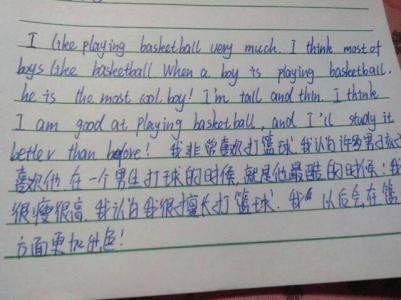 I like playing basketball very much. I think most of
boys like basketball When a boy is playing basketball.
he is the most cool boy! I'm tall and thin. I think
I am good at playing basketball, and I'll study it
better than before! 我非常喜欢打篮球.我认为许多男孩
喜欢他 在一个男生打球的时候,就是他最酷的时候!我
很瘦很高.我认为我很擅长打篮球.我 以后会在篮
方面更加出色!